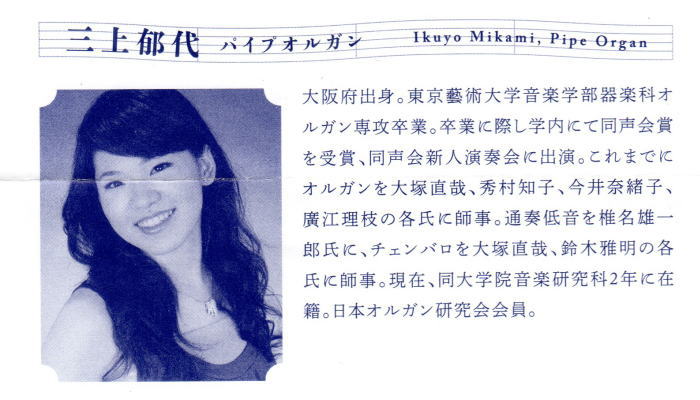 三上郁代 パイプオルガン Ikuyo Mikami, Pipe Organ
大阪府出身。東京藝術大学音楽学部器楽科オ
ルガン専攻卒業。卒業に際し学内にて同声会賞
を受賞、同声会新人演奏会に出演。これまでに
オルガンを大塚直哉、秀村知子、今井奈緒子、
廣江理枝の各氏に師事。通奏低音を椎名雄一
郎氏に、チェンバロを大塚直哉、鈴木雅明の各
氏に師事。現在、同大学院音楽研究科2年に在
籍。日本オルガン研究会会員。